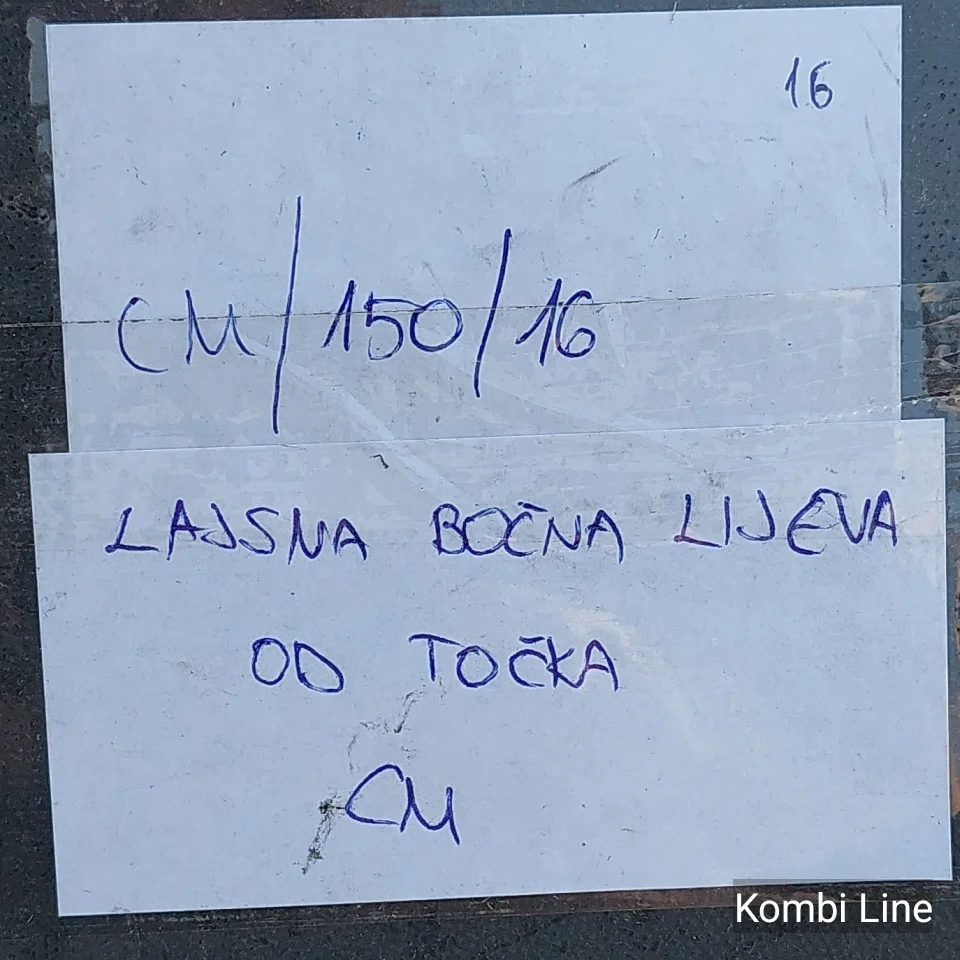 16
CM/150/16
LAJSNA BOČNA LIJEVA
OD TOČKA
CM
Kombi Line